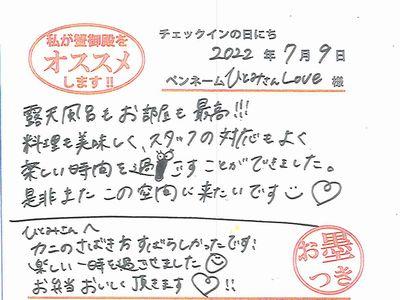 私が蟹御殿を
オススメ
します!!
チェックインの日にち
2022年7月9日
ペンネーム ひとみさんLove 様
露天風呂もお部屋も最高!!!
料理も美味しく、スタッフの対応もよく
楽しい時間を過ごすことができました。
是非またこの空間に来たいです
ひとみさんへ
カニのさばき方すばらしかったです!
楽しい一時を過ごせました
お弁当おいしく頂きます!!
お墨
つき